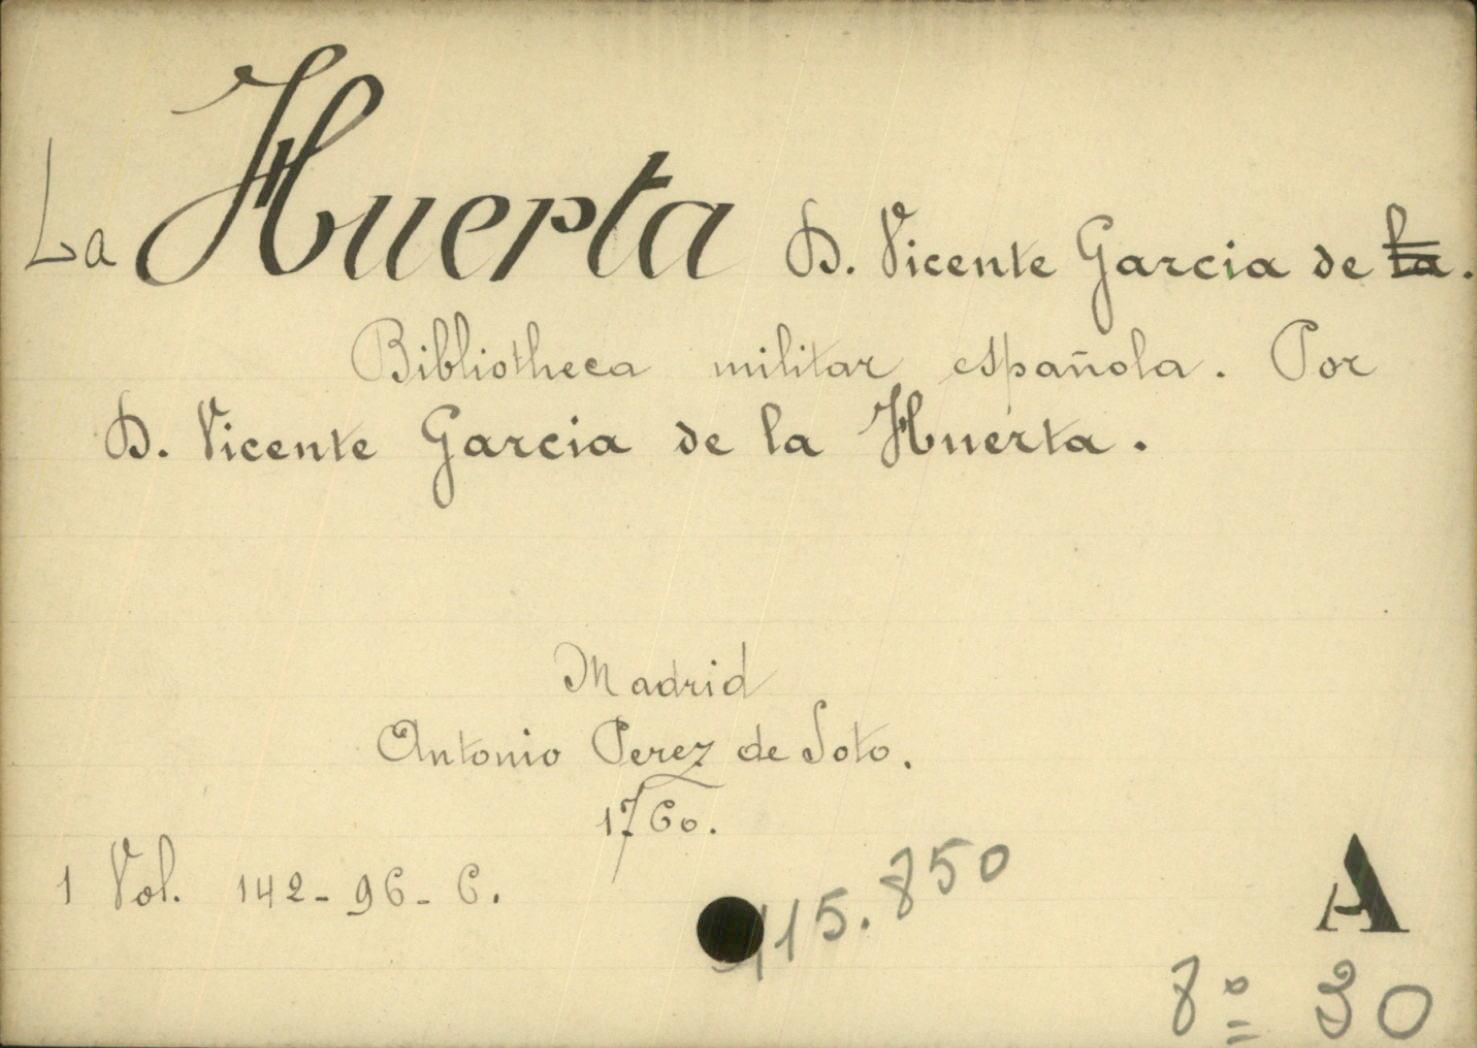 La Huerta D. Vicente Garcia de la.
Bibliotheca militar española. Por
D. Vicente Garcia de la Huerta.
Madrid
Antonio Perez de Soto.
1760.
1 Vol. 142-96-6.
115.850
A
8º 30